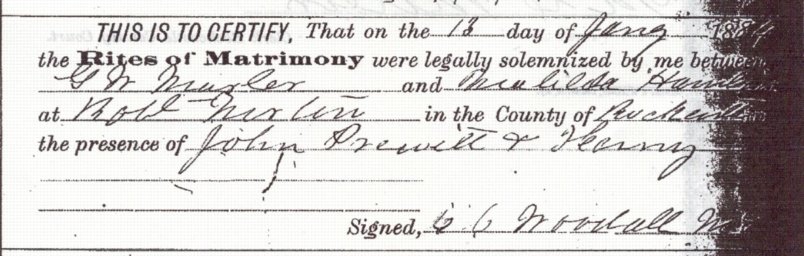 THIS IS TO CERTIFY, That on the 13 day of Jany 1884
the Rites of Matrimony were legally solemnized by me between
G W and Matilda
at Robt Martin in the County of
the presence of John Prewitt & Henry
Signed, C C Woodall